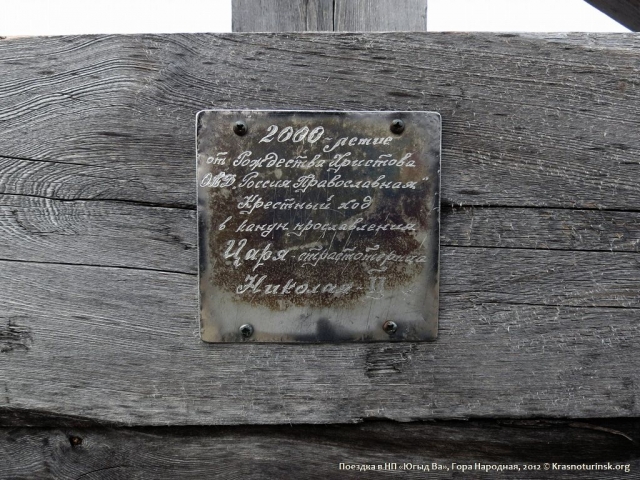 2000-летие
от Рождества Христова
ОВД "Россия Православная"
Крестный ход
в канун прославления
Царя-страстотерпца
Николая II
Поездка в НП «Югыд Ва», Гора Народная, 2012 © Krasnoturinsk.org